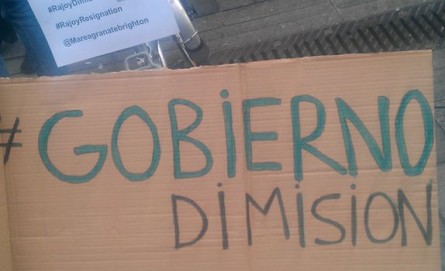 #RajoyDimi
#RajoyResignation
@Mareagranatebrighton
#GOBIERNO
DIMISION